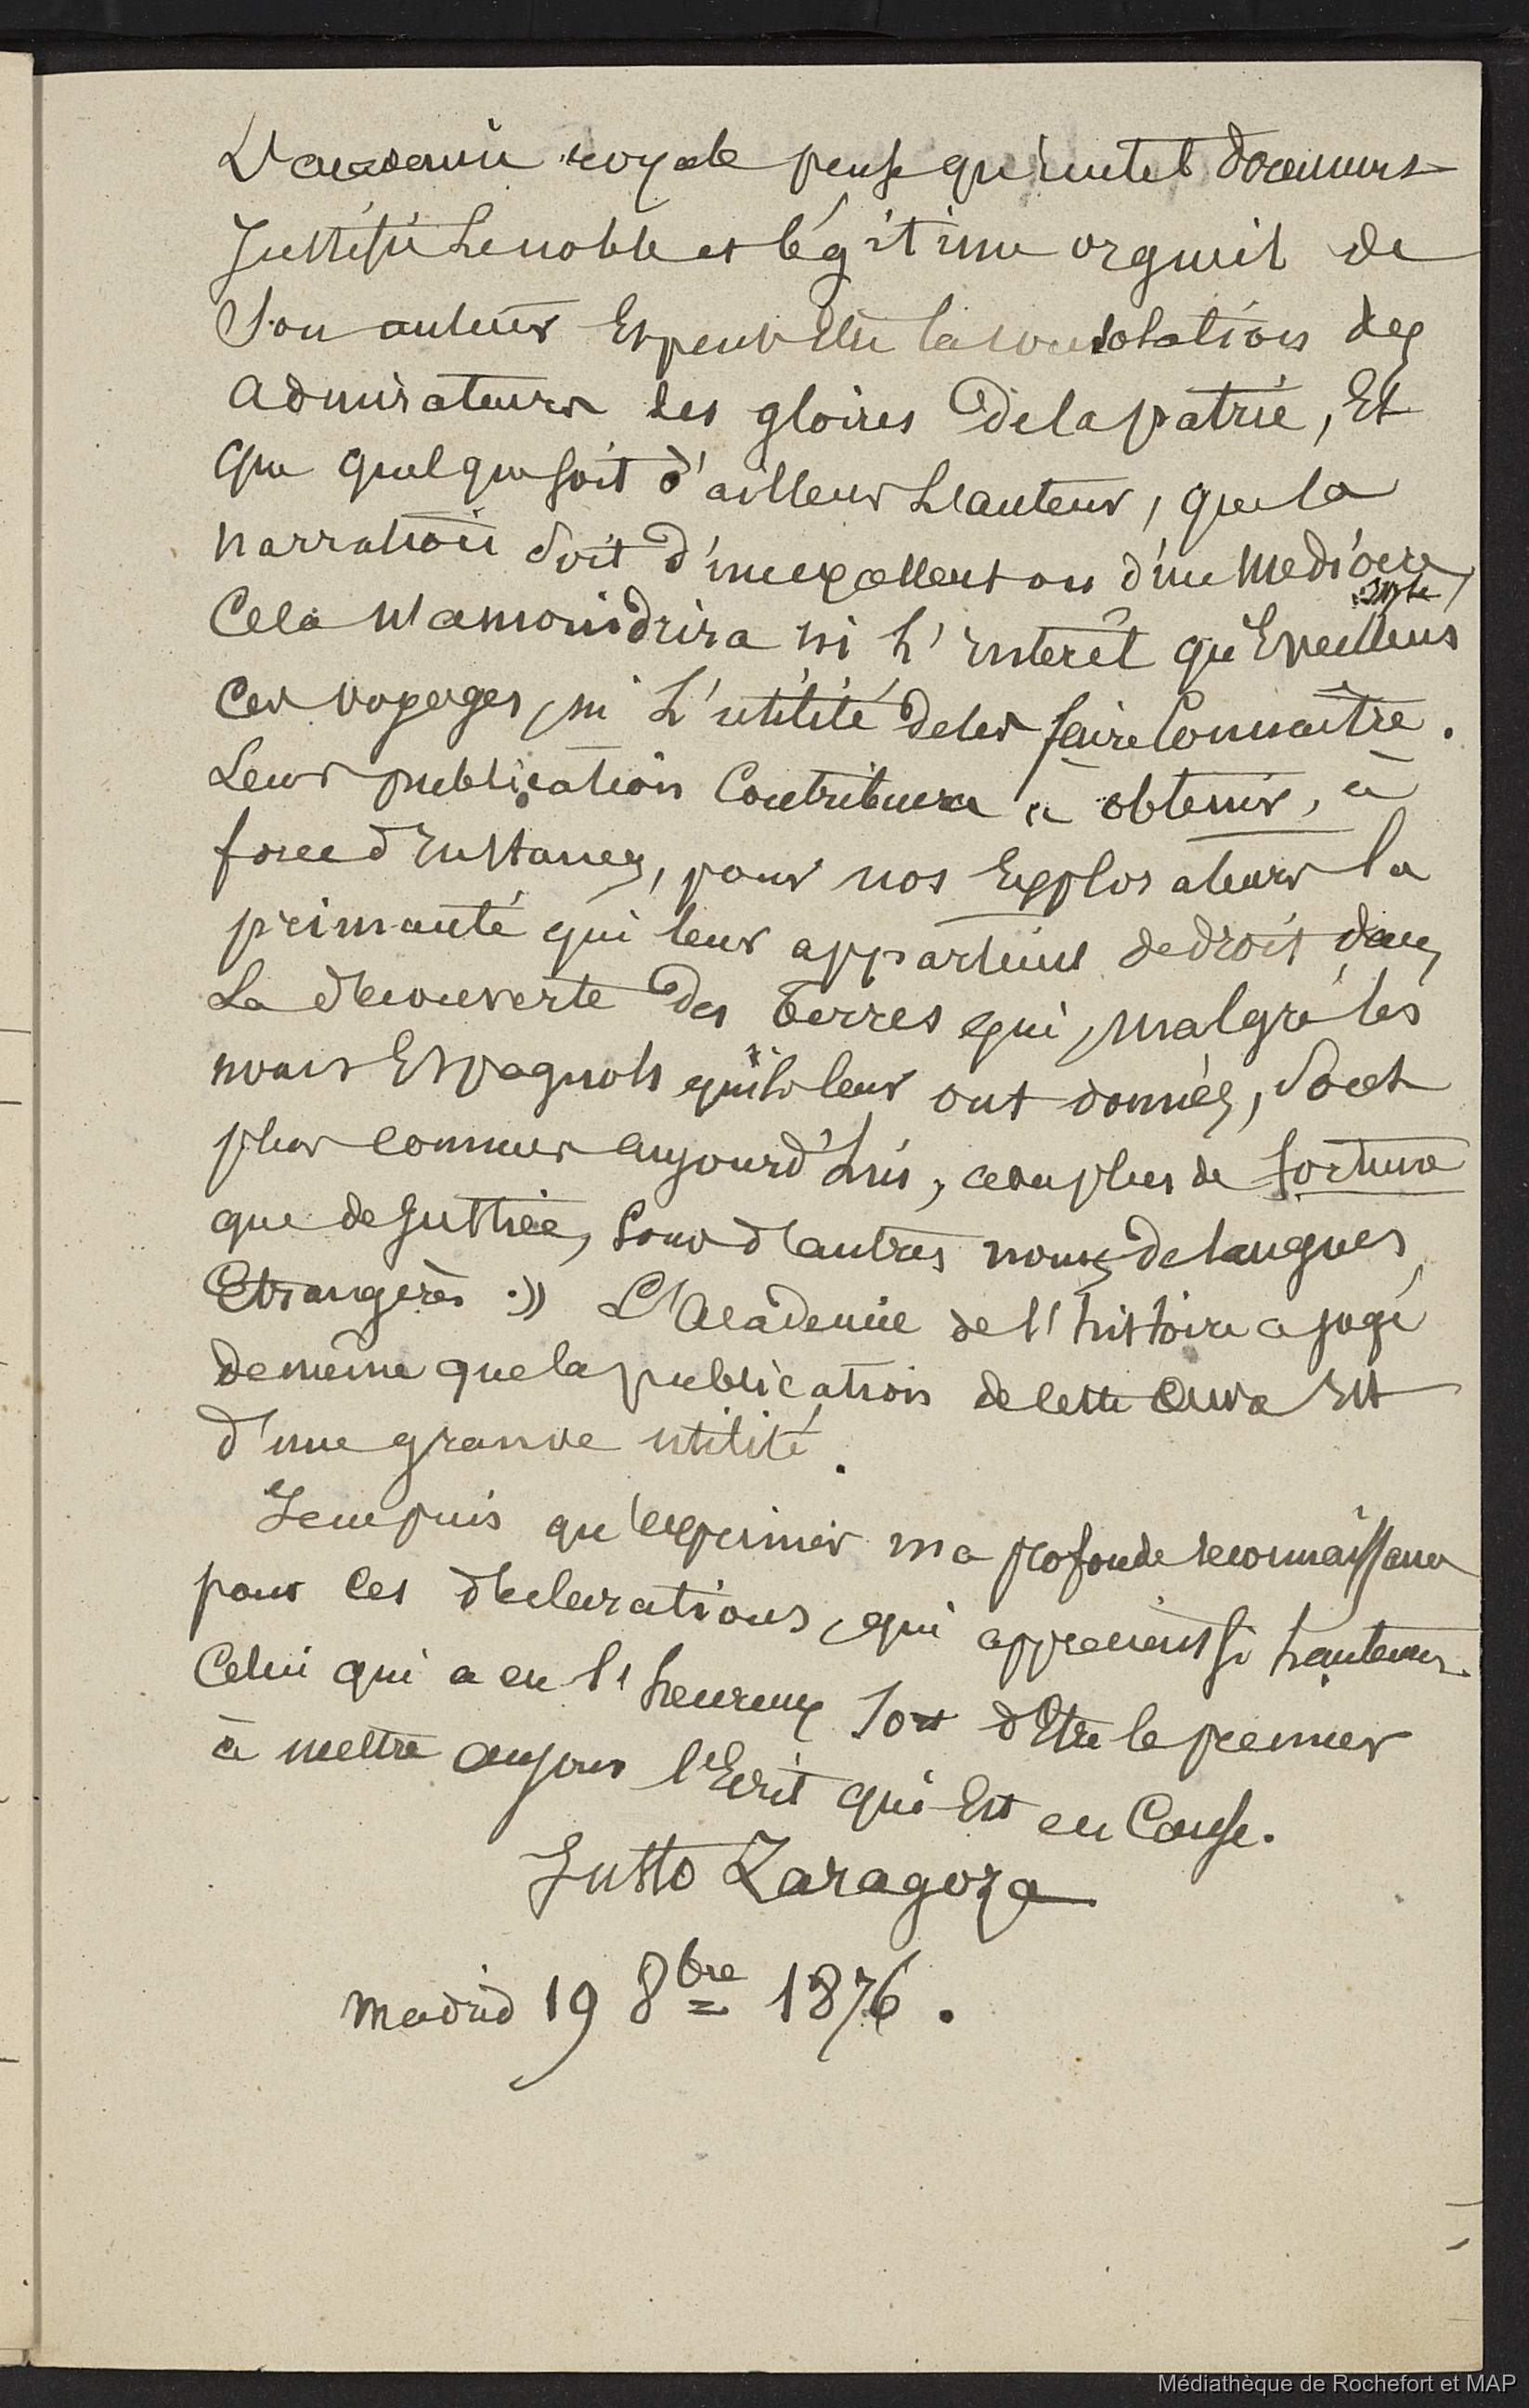 L'academie royale pense qu'un tel document
Justifie le noble et légitime orgueil de
Son auteur Et peut Etre la consolation des
admirateurs des gloires de la patrie, Et
que quel que soit d'ailleurs L'auteur, que la
narration soit d'un excellent ou d'un mediocre
style,
Cela n'amoindrira ni l'interêt qu'Eveillent
Ces voyages, ni L'utilité de les faire Connaitre.
Leur publication Contribuera à obtenir, à
force d'Instances, pour nos Explorateurs la
primauté qui leur appartient de droit dans
La découverte des terres qui, malgré les
noms Espagnols qu'ils leur ont donnés, Sont
plus connues aujourd'hui, avec plus de fortune
que de Justice, Sous d'autres noms de langues
Etrangères.» L'Academie de l'histoire a jugé
de même que la publication de cette Œuvre Est
d'une grande utilité.
Je ne puis qu'exprimer ma profonde reconnaissance
pour ces déclarations, qui apprecient si hautement
Celui qui a eu l'heureux Sort d'Etre le premier
à mettre au jour l'Ecrit qui Est en Cause.
Justo Zaragoza
Madrid 19 8bre 1876.
Médiathèque de Rochefort et MAP